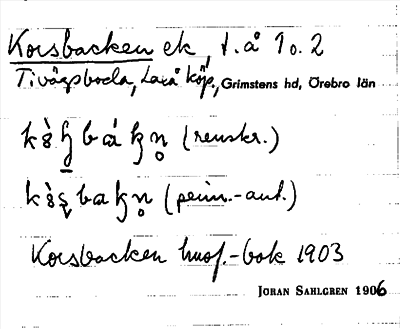 Korsbacken ek, t. å 1 o. 2
Tivägsboda, Laxå köp., Grimstens hd, Örebro län
(renskr.)
(penn.-ant.)
Korsbacken husf.-bok 1903
JÖRAN SAHLGREN 1906